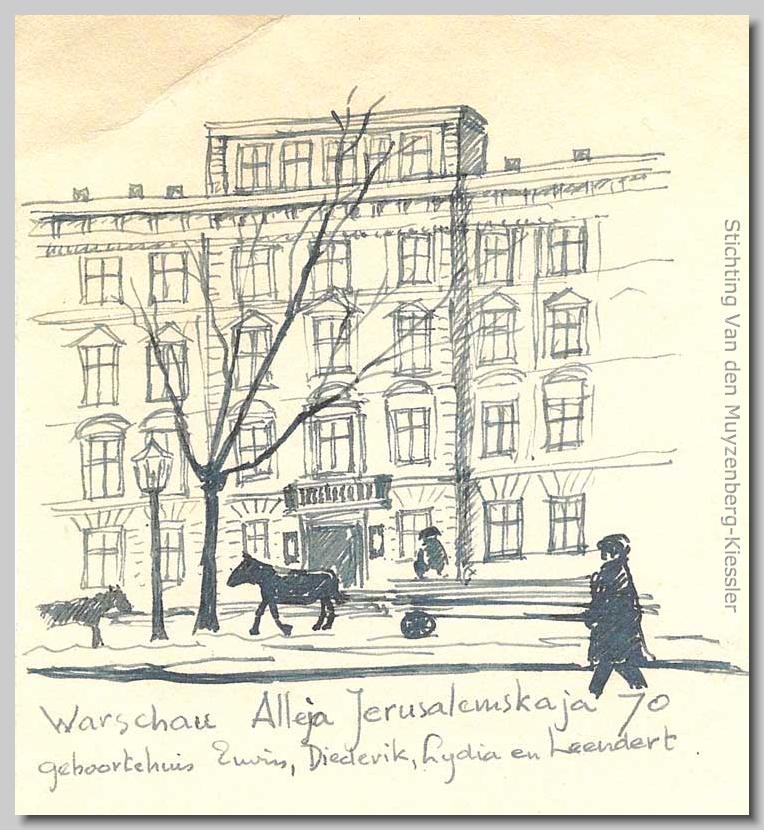 Warschau Alleja Jerusalemskaja 70
geboortehuis Erwin, Diederik, Lydia en Leendert.
Stichting Van den Muyzenberg-Kiessler